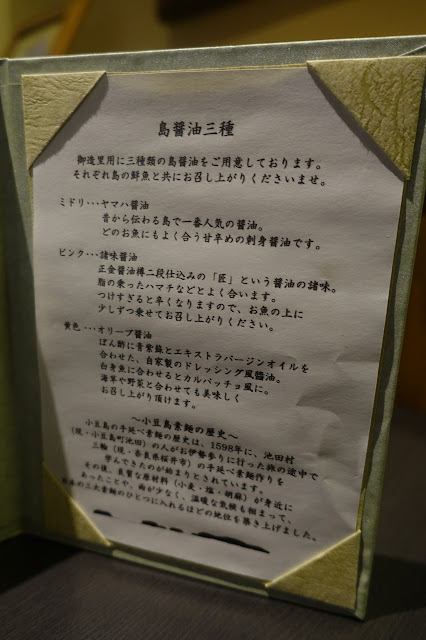 島醤油三種
御造里用に三種類の島醤油をご用意しております。
それぞれ島の鮮魚と共にお召し上がりくださいませ。
ミドリ・・・ヤマハ醤油
昔から伝わる島で一番人気の醤油。
どのお魚にもよく合う甘辛めの刺身醤油です。
ピンク・・・諸味醤油
正金醤油樽二段仕込みの「匠」という醤油の諸味。
脂の乗ったハマチなどとよく合います。
つけすぎると辛くなりますので、お魚の上に
少しずつ乗せてお召し上がりください。
黄色・・・オリーブ醤油
ぽん酢に青紫蘇とエキストラバージンオイルを
合わせた、自家製のドレッシング風醤油。
白身魚に合わせるとカルパッチョ風に。
海草や野菜と合わせても美味しく
お召し上がり頂けます。
～小豆島素麺の歴史～
小豆島の手延べ素麺の歴史は、1598年に、池田村
（現・小豆島町池田）の人がお伊勢参りに行った旅の途中で
三輪（現・奈良県桜井市）の手延べ素麺作りを
学んできたのが始まりとされています。
その後、良質な原材料（小麦・塩・胡麻）が身近に
あったことや、雨が少なく、温暖な気候も相まって、
日本の三大素麺のひとつに入れるほどの地位を築き上げました。